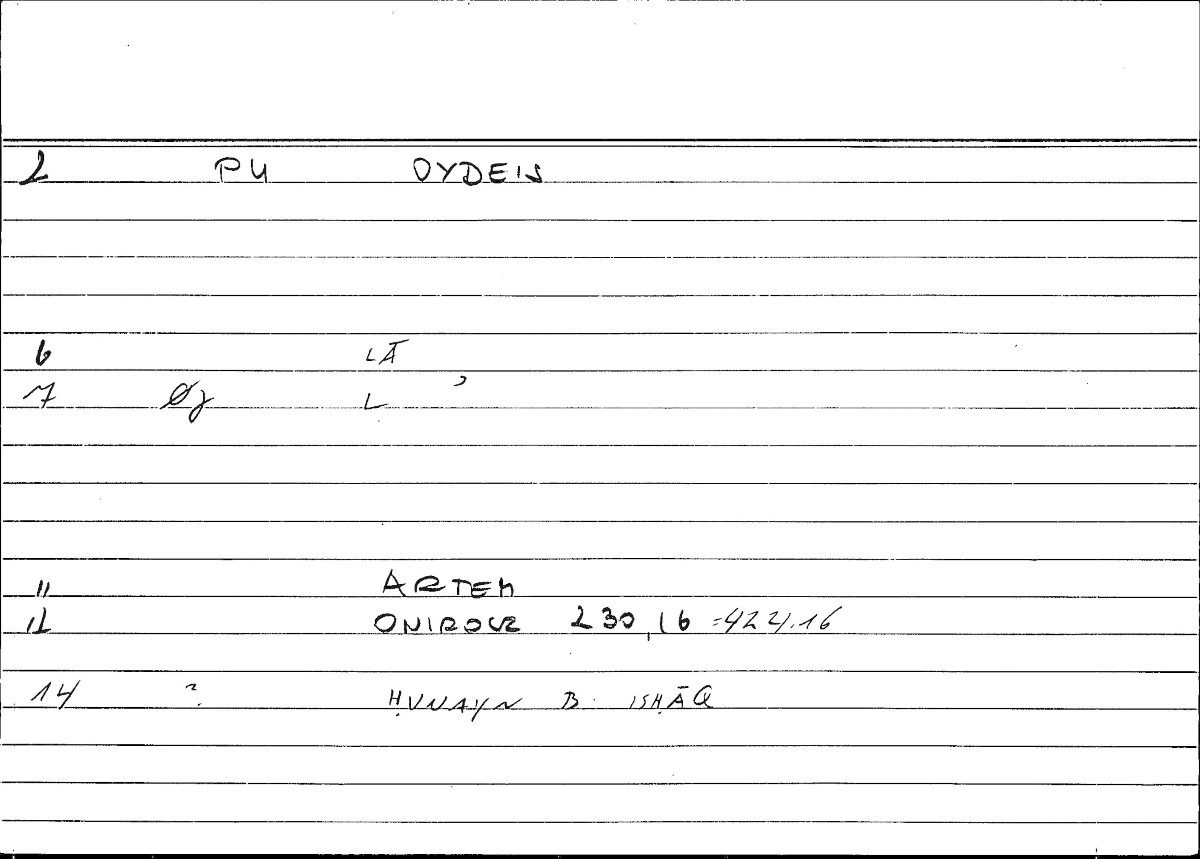 2 PU OYDEIS
6 LĀ
7 Øy L ʾ
11 ARTEM
12 ONIROCR 230,16 =424.16
14 ? ḤUNAYN B. ISḤĀQ